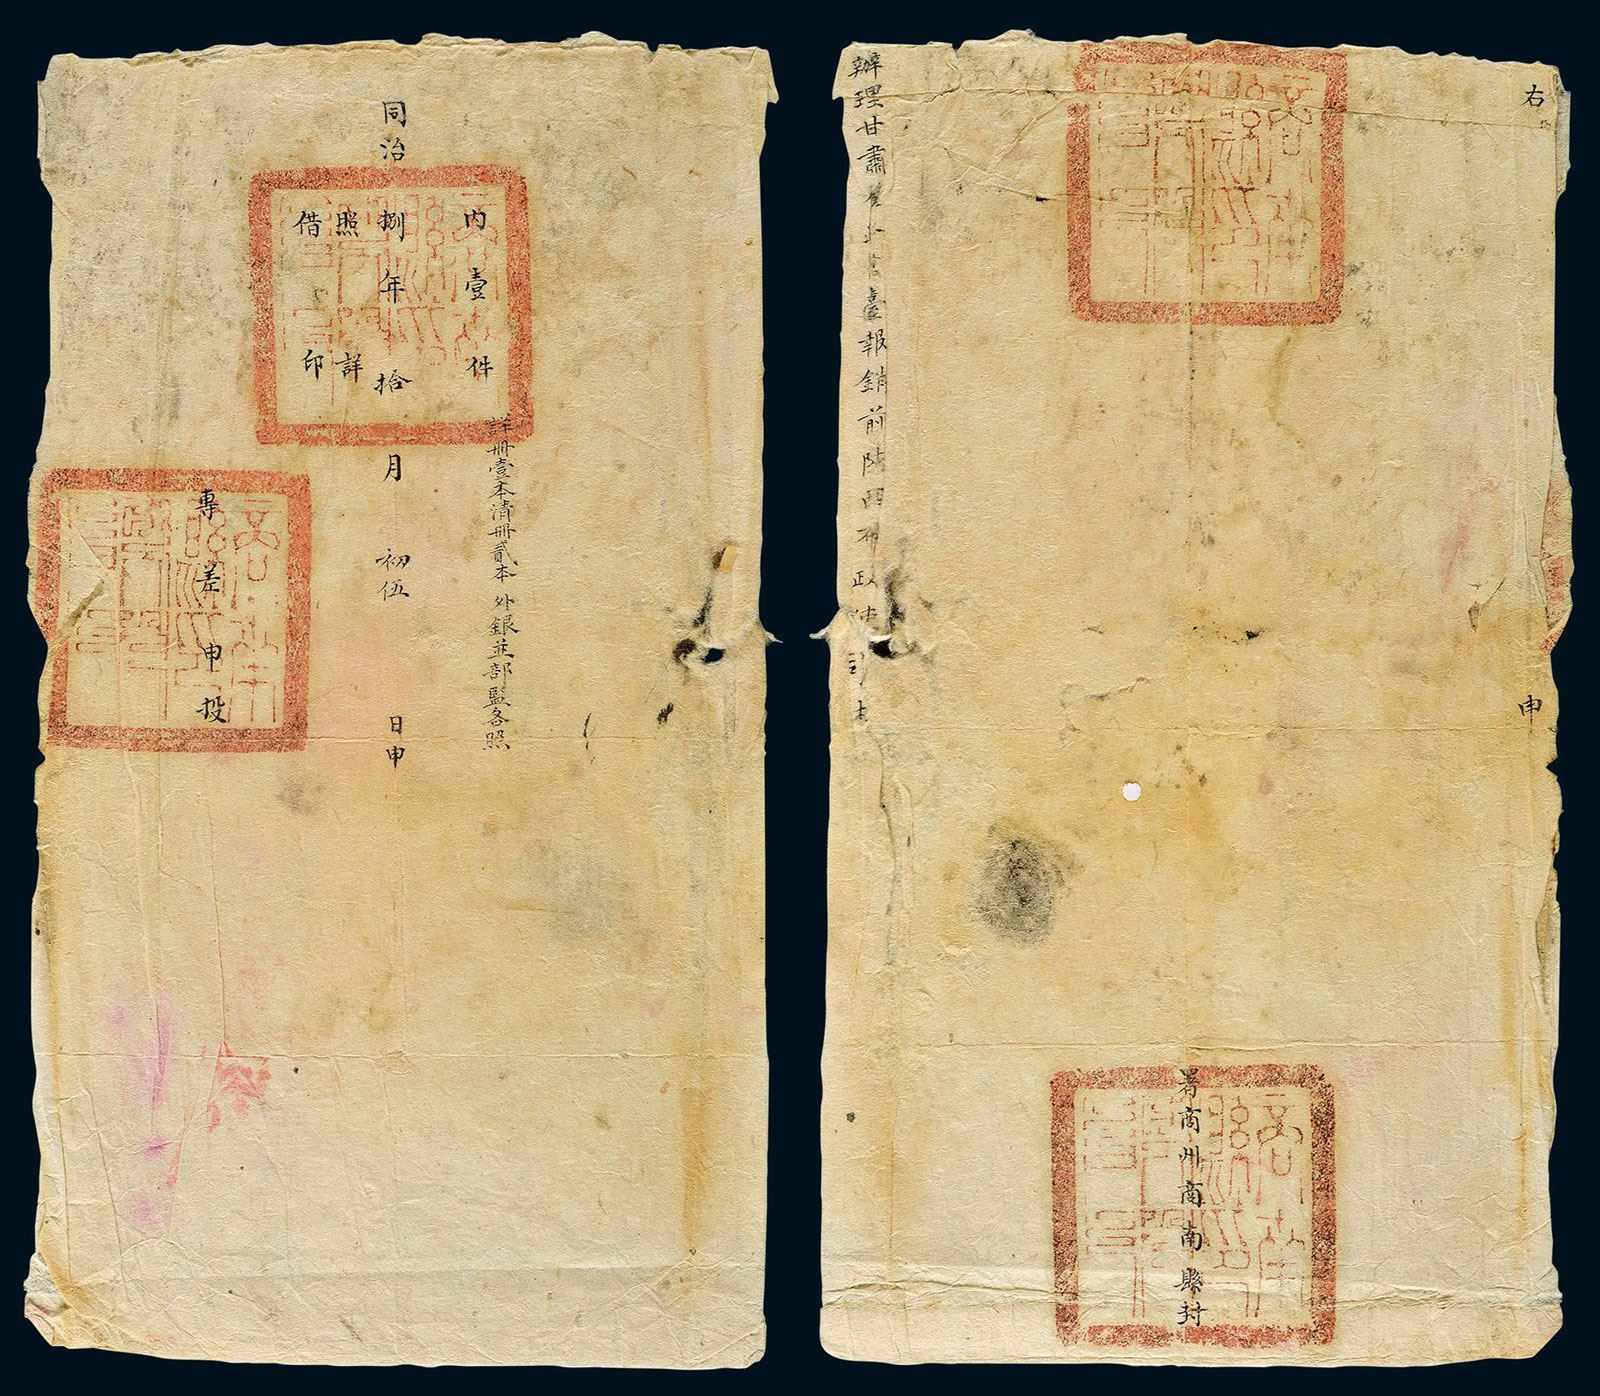 內壹件
詳冊壹本清冊貳本 外銀並部監各照
同治捌年拾月初伍日申
照詳
借印
專差申投
右
申
署商州商南縣封
辦理甘肅臺報銷前陝西布政使司